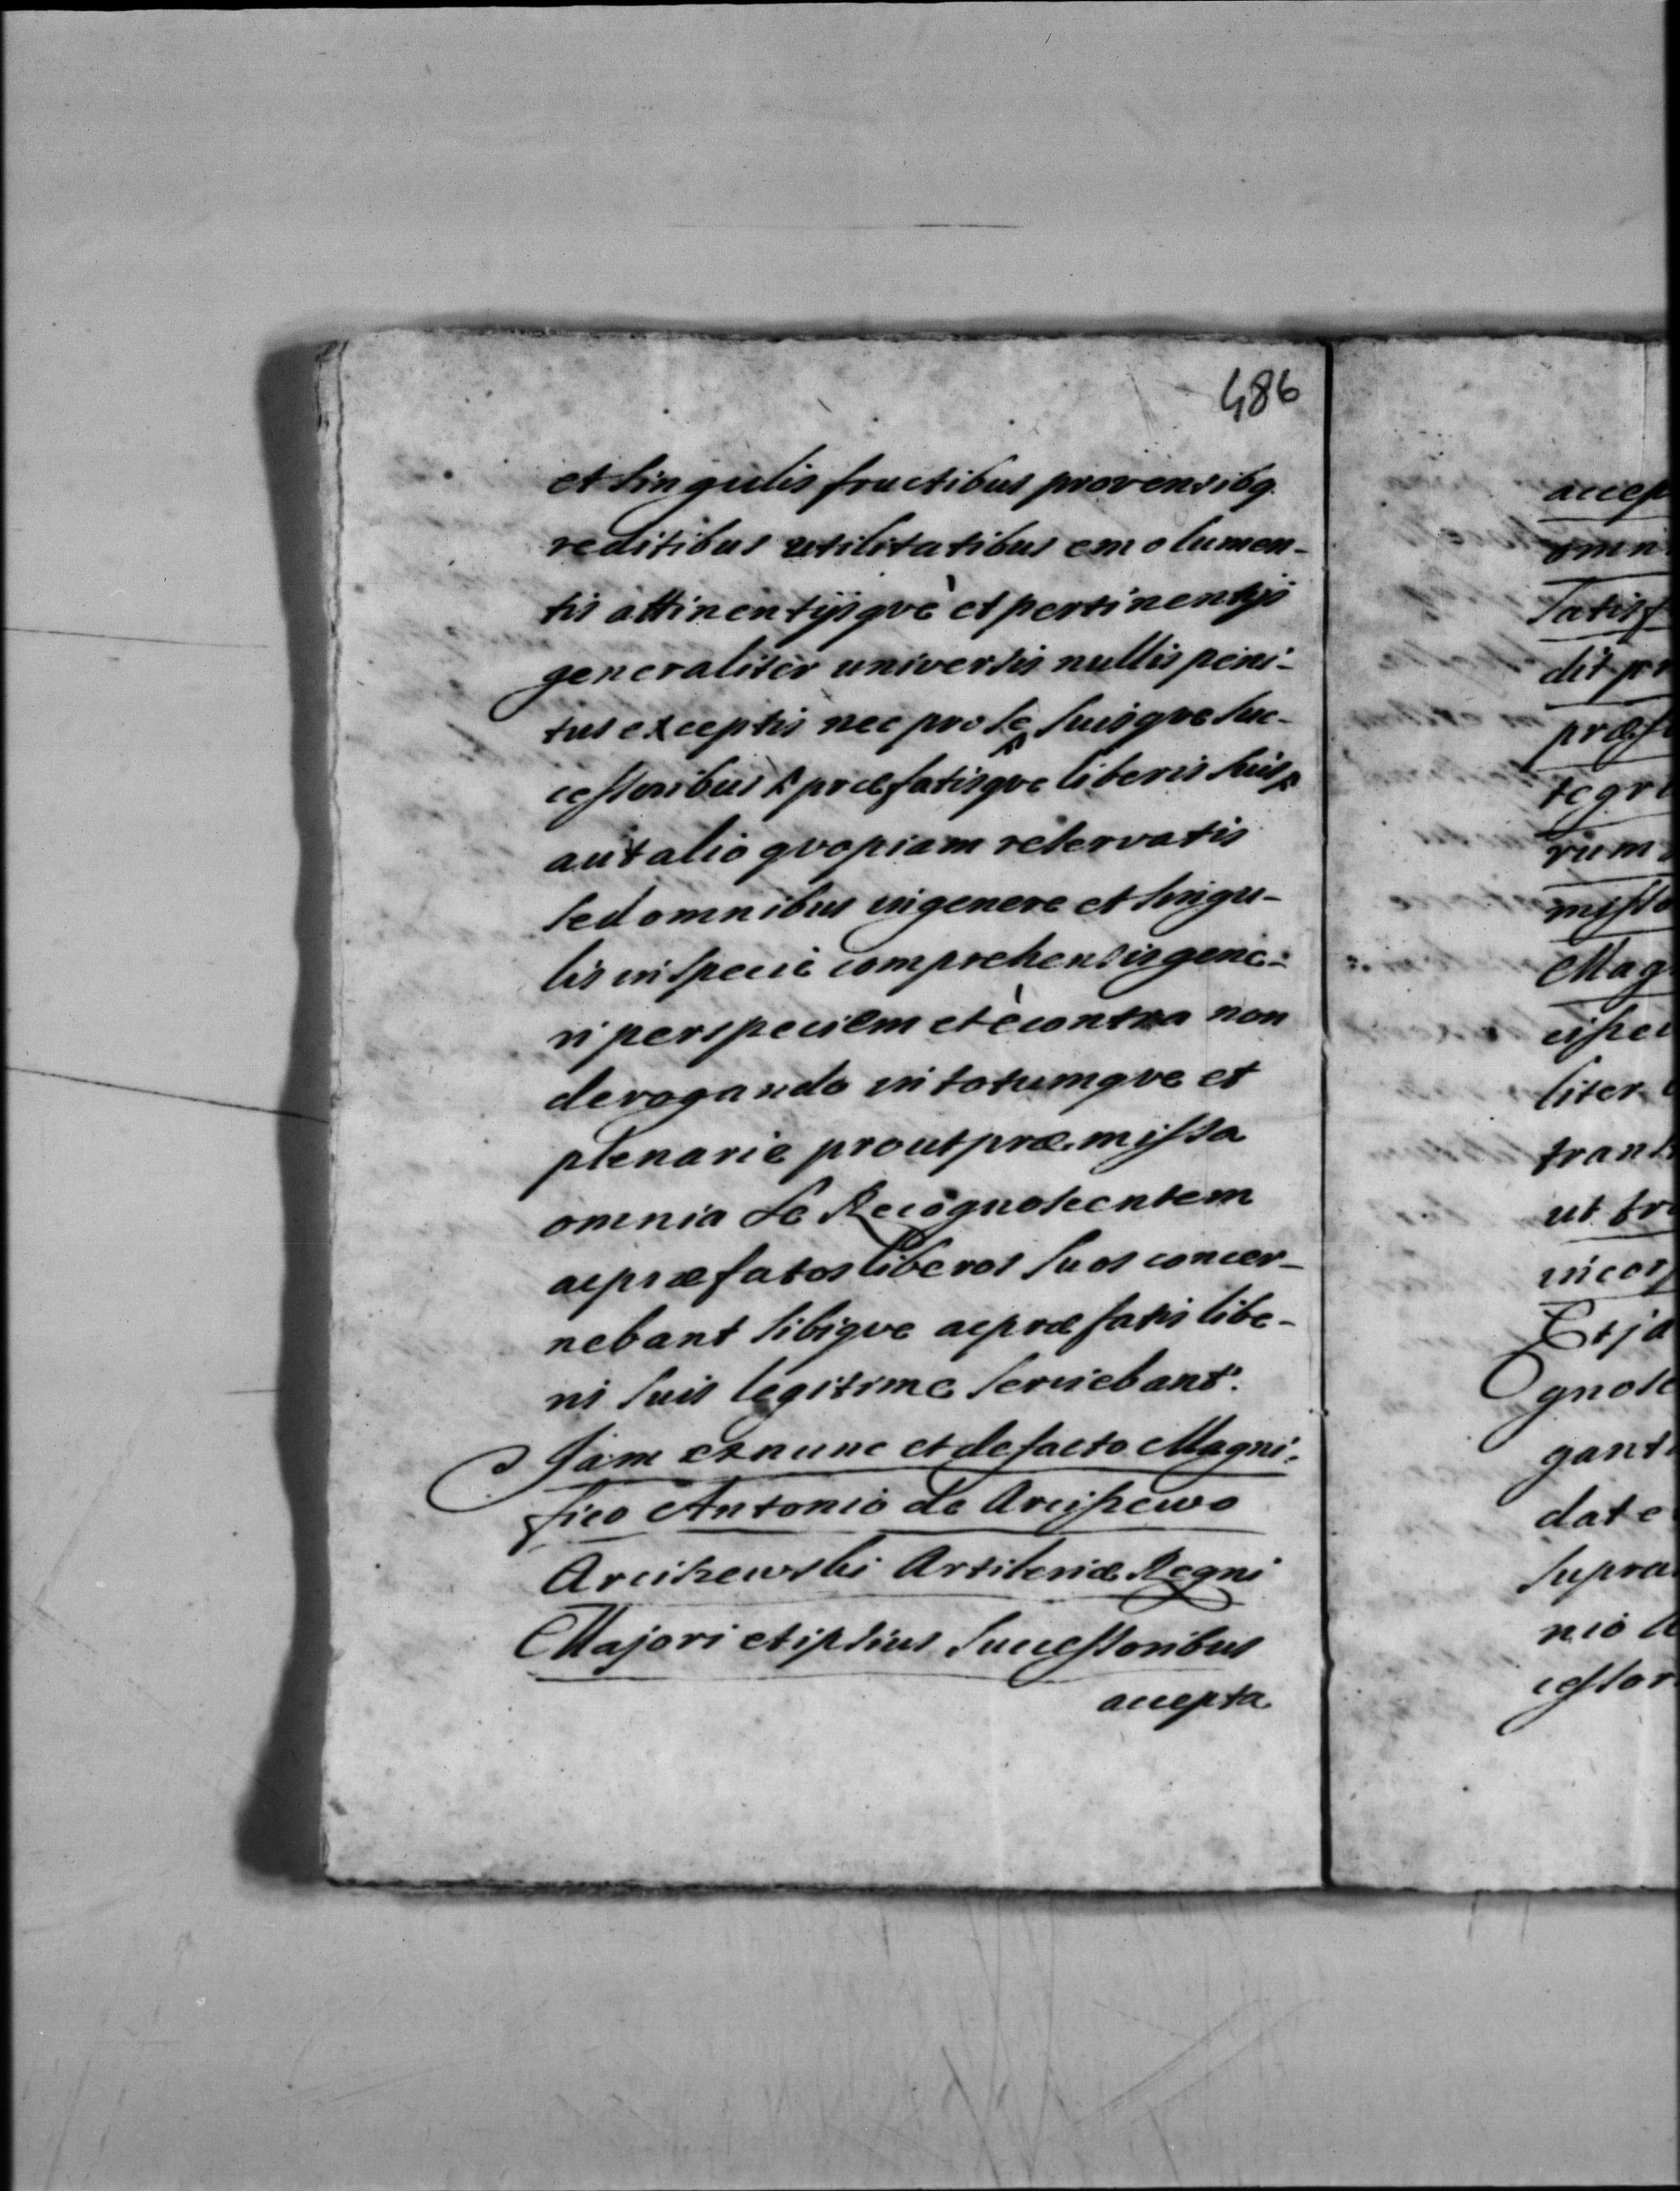 486
et singulis fructibus provensibq.
reditibus utilitatibus emolumen-
tis attinentijsqvè et pertinentijs
generaliter universis nullis peni-
tus exceptis nec pro se suisqve suc-
cessoribus præfatisqve liberis suis
aut alio qvopiam reservatis
sed omnibus in genere et singu-
lis in specie comprehensis gene-
ri per speciem et è contra non
derogando in totumqve et
plenarie prout præmissa
omnia Se Recognoscentem
ac præfatos liberos suos concer-
nebant sibiqve ac præfatis libe-
ris suis legitime serviebant.
Jam ex nunc et de facto Magni-
fico Antonio de Arciszewo
Arciszewski Artileriæ Regni
Majori et ipsius Successoribus
accepta
accep
omn
Satisf
dit pr
præf
tegr
rum
misso
Mag
cisze
liter
trans
ut tr
incor
Et ja
gnosc
gant
dat e
supra
nio
cessor